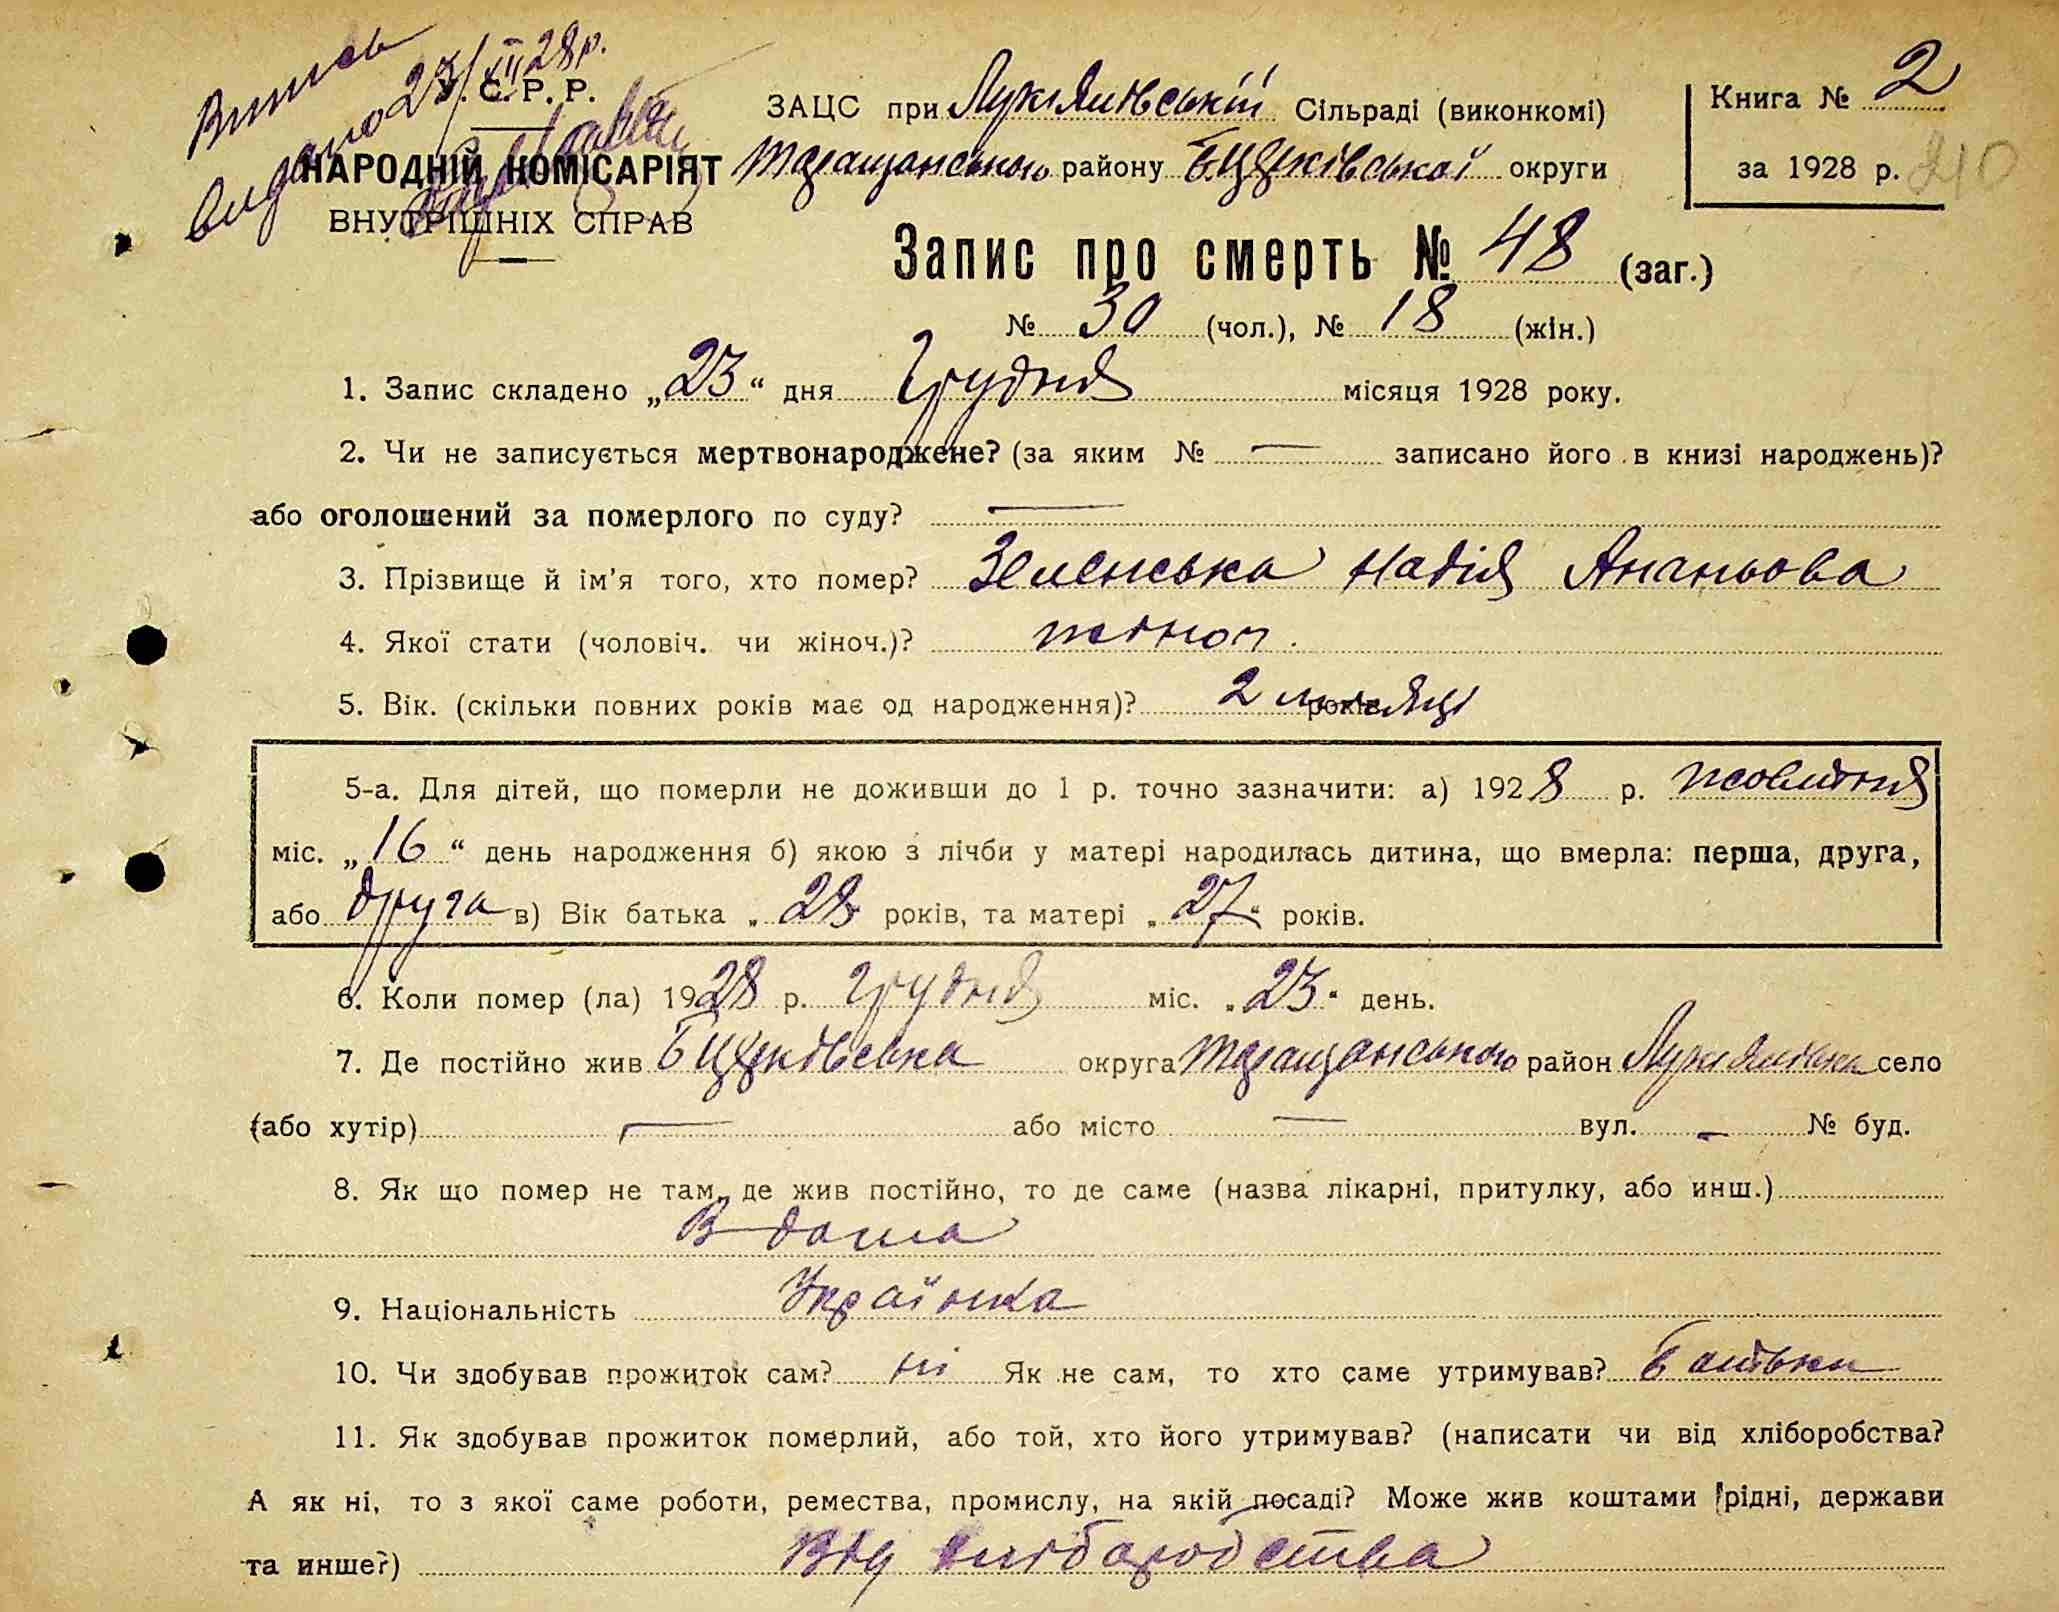 Випись
видано 23/XII 28 р.
У. С. Р. Р.
НАРОДНІЙ КОМІСАРІЯТ
ВНУТРІШНІХ СПРАВ
ЗАЦС при Лукіянівській Сільраді (виконкомі)
Таращанського району Б Церківської округи
Книга № 2
за 1928 р. 210
Запис про смерть № 48 (заг.)
№ 30 (чол.), № 18 (жін.)
1. Запис складено „23“ дня Грудня місяця 1928 року.
2. Чи не записується мертвонароджене? (за яким № — записано його в книзі народжень)?
або оголошений за померлого по суду? —
3. Прізвище й ім'я того, хто помер? Зеленська Надія Ананьова
4. Якої стати (чоловіч. чи жіноч.)? жіноч.
5. Вік. (скільки повних років має од народження)? 2 місяці років
5-а. Для дітей, що померли не доживши до 1 р. точно зазначити: а) 1928 р. жовтня
міс. „16“ день народження б) якою з лічби у матері народилась дитина, що вмерла: перша, друга,
або друга в) Вік батька „28“ років, та матері „27“ років.
6. Коли помер (ла) 1928 р. грудня міс. „23“ день.
7. Де постійно жив Б Церківська округа Таращанського район Лукіянівка село
(або хутір) — або місто — вул. — № буд.
8. Як що помер не там, де жив постійно, то де саме (назва лікарні, притулку, або инш.)
В дома
9. Національність Українка
10. Чи здобував прожиток сам? ні Як не сам, то хто саме утримував? Батьки
11. Як здобував прожиток померлий, або той, хто його утримував? (написати чи від хліборобства?
А як ні, то з якої саме роботи, ремества, промислу, на якій посаді? Може жив коштами рідні, держави
та инше?) Від хліборобства